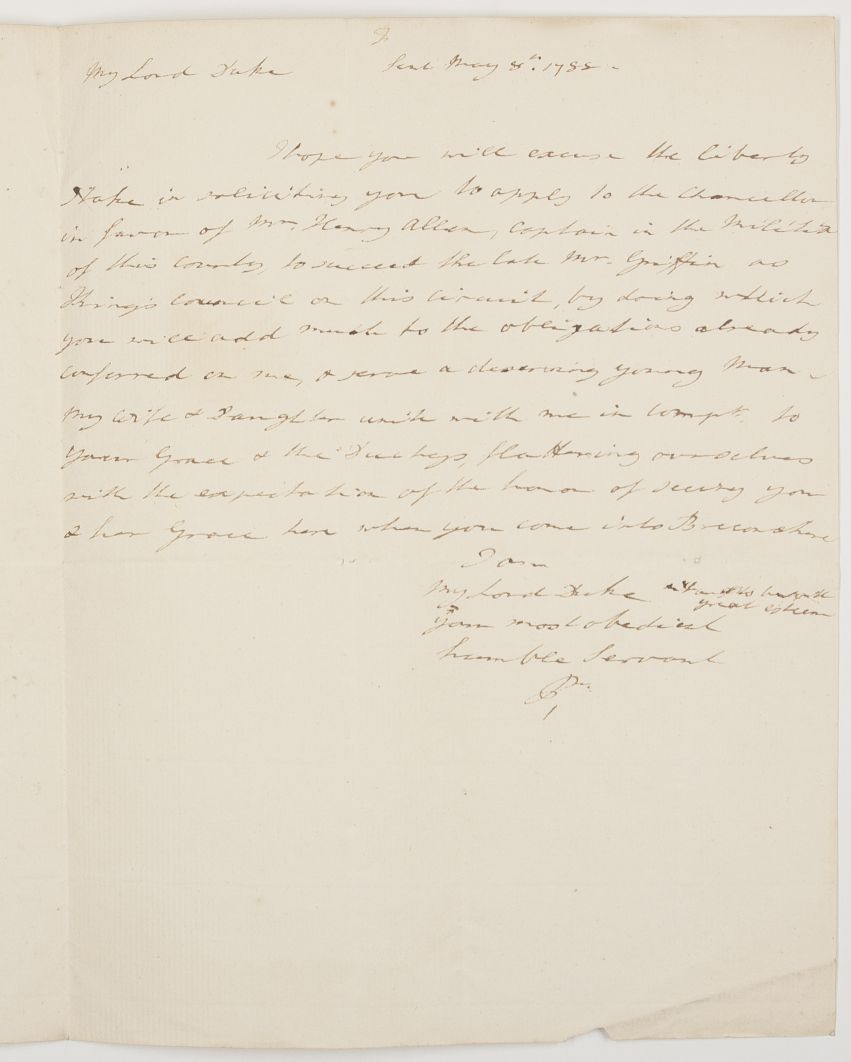 My Lord Duke Sent May 8th. 1788 -
I hope you will excuse the liberty
I take in soliciting you to apply to the Chancellor
in favor of Mr. Henry Allen, Captain in the Militia
of this County, to succeed the late Mr. Griffin as
King's Council on this Circuit, by doing which
you will add much to the obligations already
conferred on me, & serve a deserving young Man -
My Wife & Daughter unite with me in Compts. to
Your Grace & the Dutchess, flattering ourselves
with the expectation of the honor of seeing you
& her Grace here when you come into Breconshire
I am
My Lord Duke with
great esteem
Your most obedient
humble Servant